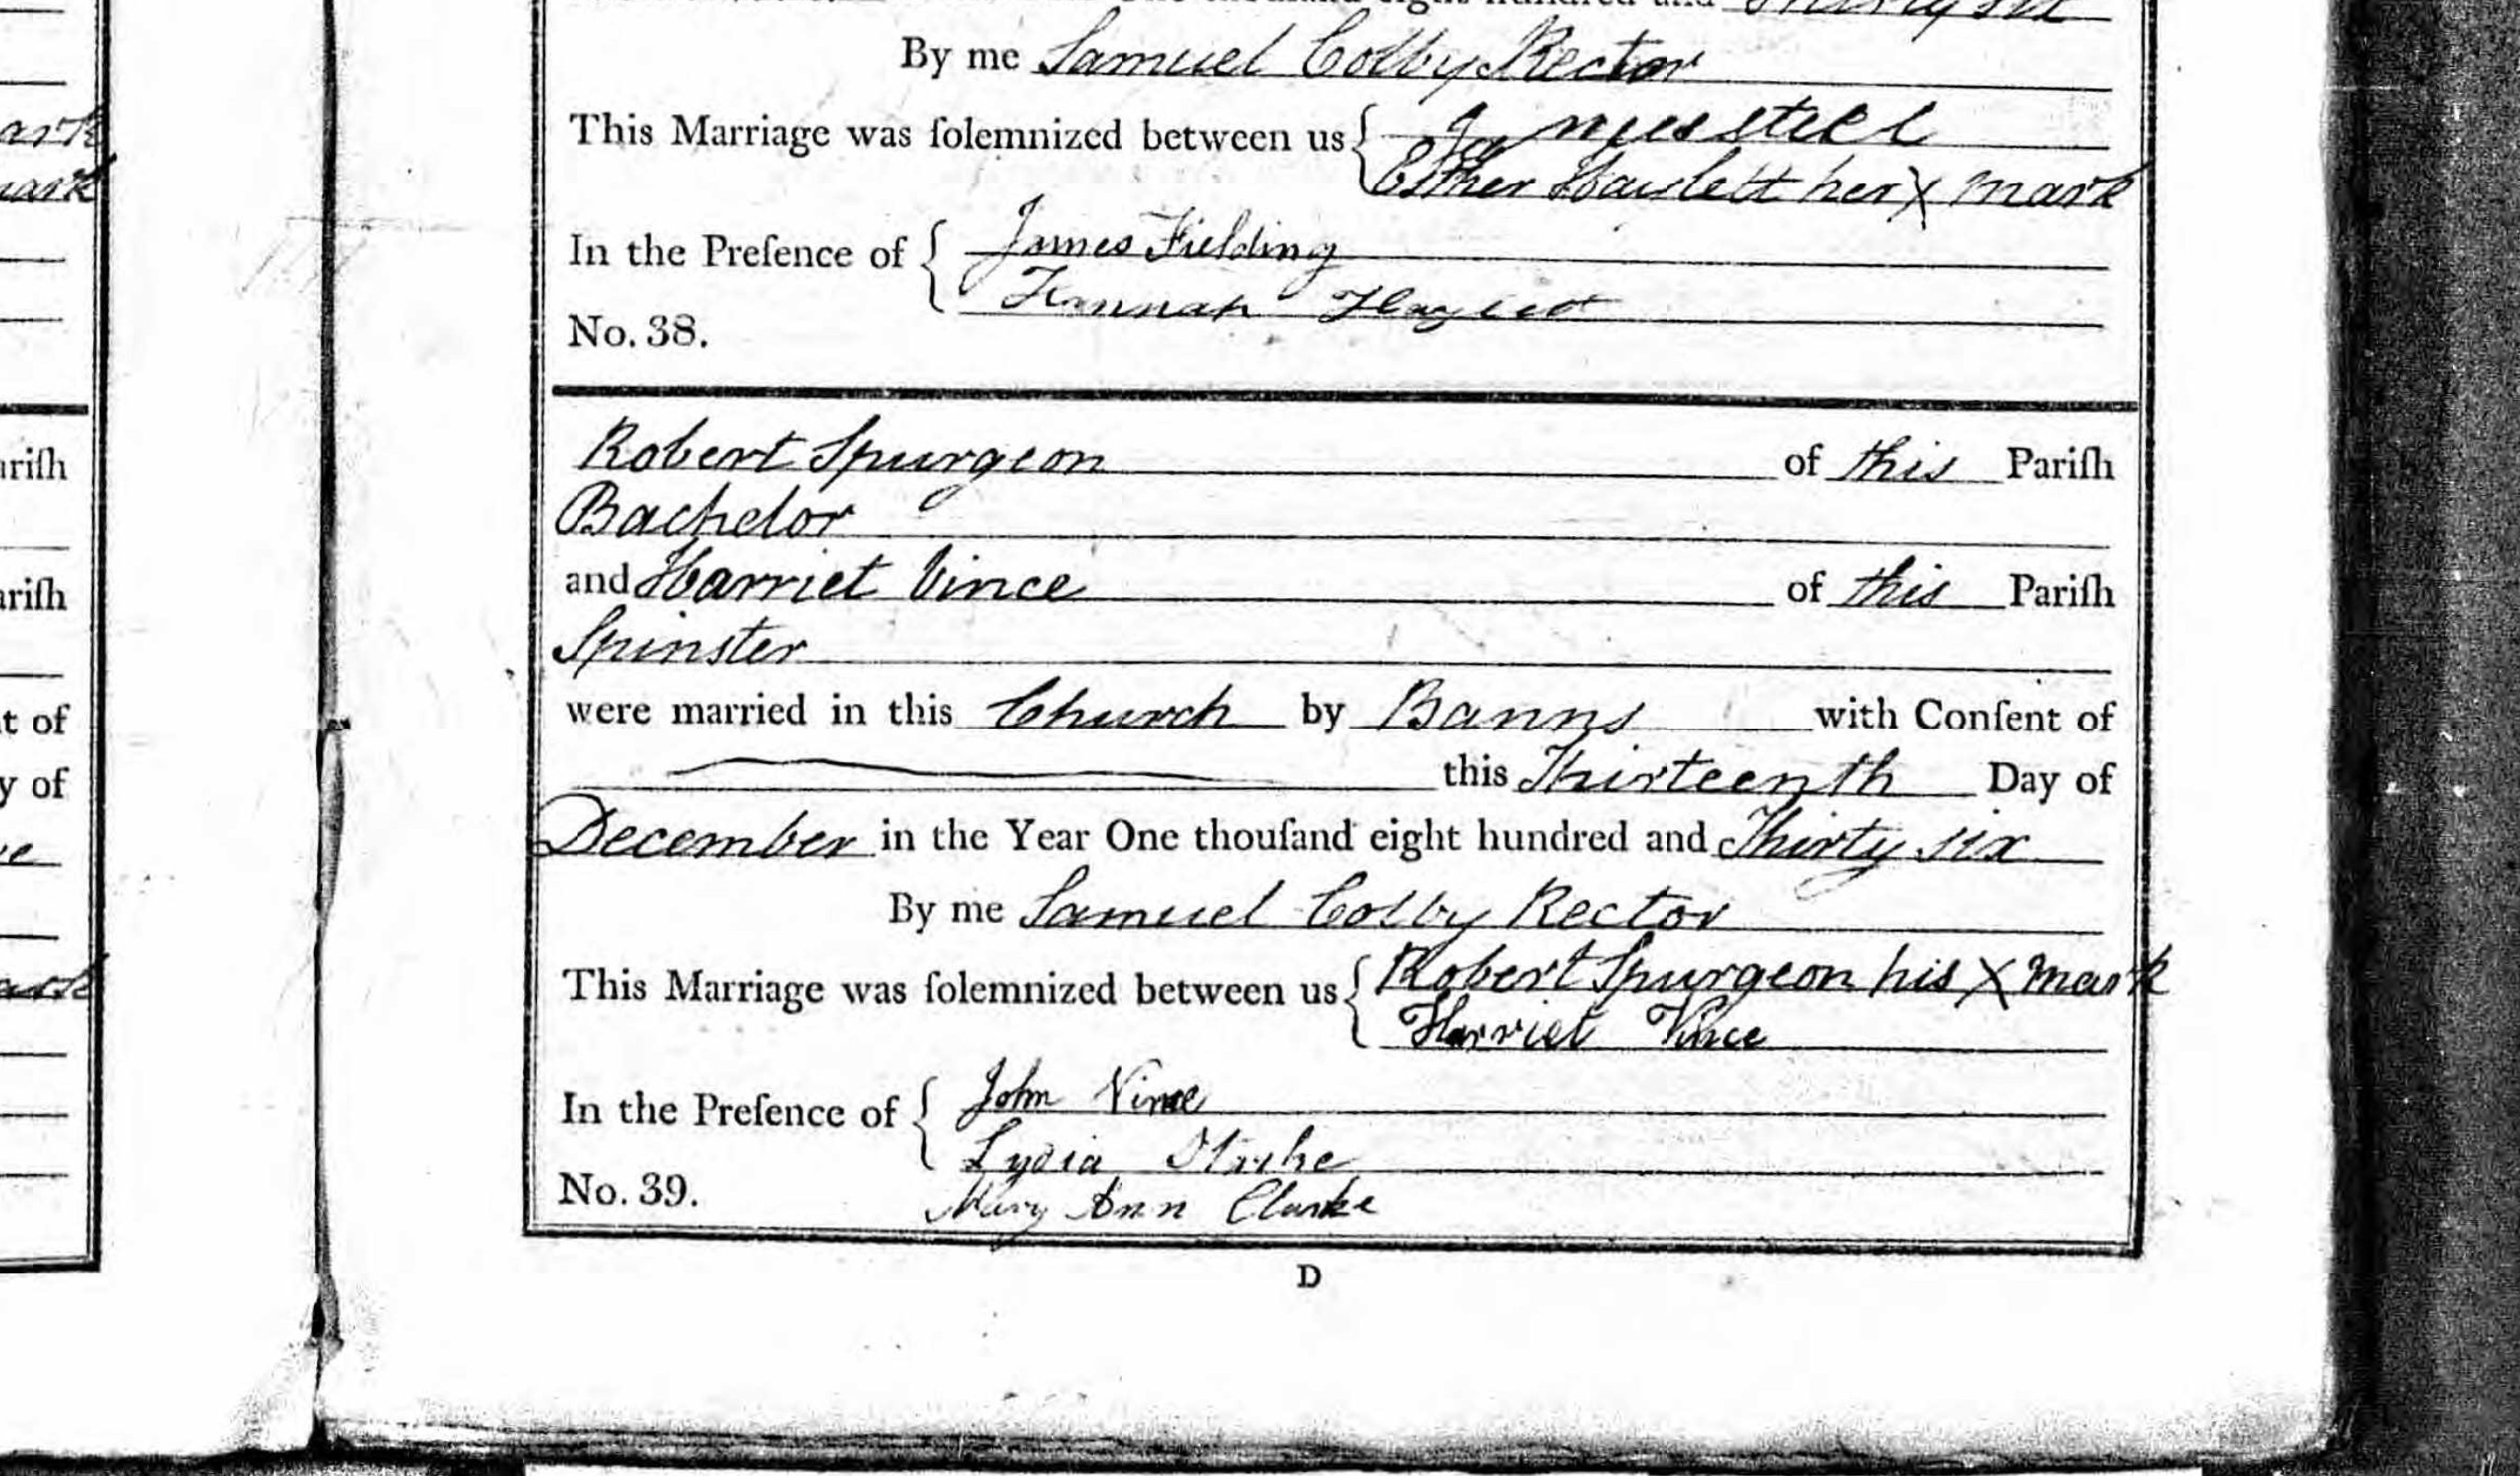 By me Samuel Colby Rector
This Marriage was ſolemnized between us { James Steel
Esther Haislett her X mark
In the Preſence of { James Fielding
Hannah
No. 38.
Robert Spurgeon of this Pariſh
Bachelor
and Harriet Vince of this Pariſh
Spinster
were married in this Church by Banns with Conſent of
this Thirteenth Day of
December in the Year One thouſand eight hundred and Thirty six
By me Samuel Colby Rector
This Marriage was ſolemnized between us { Robert Spurgeon his X mark
Harriet Vince
In the Preſence of { John Vince
Lydia
No. 39. Mary Ann Clarke
D